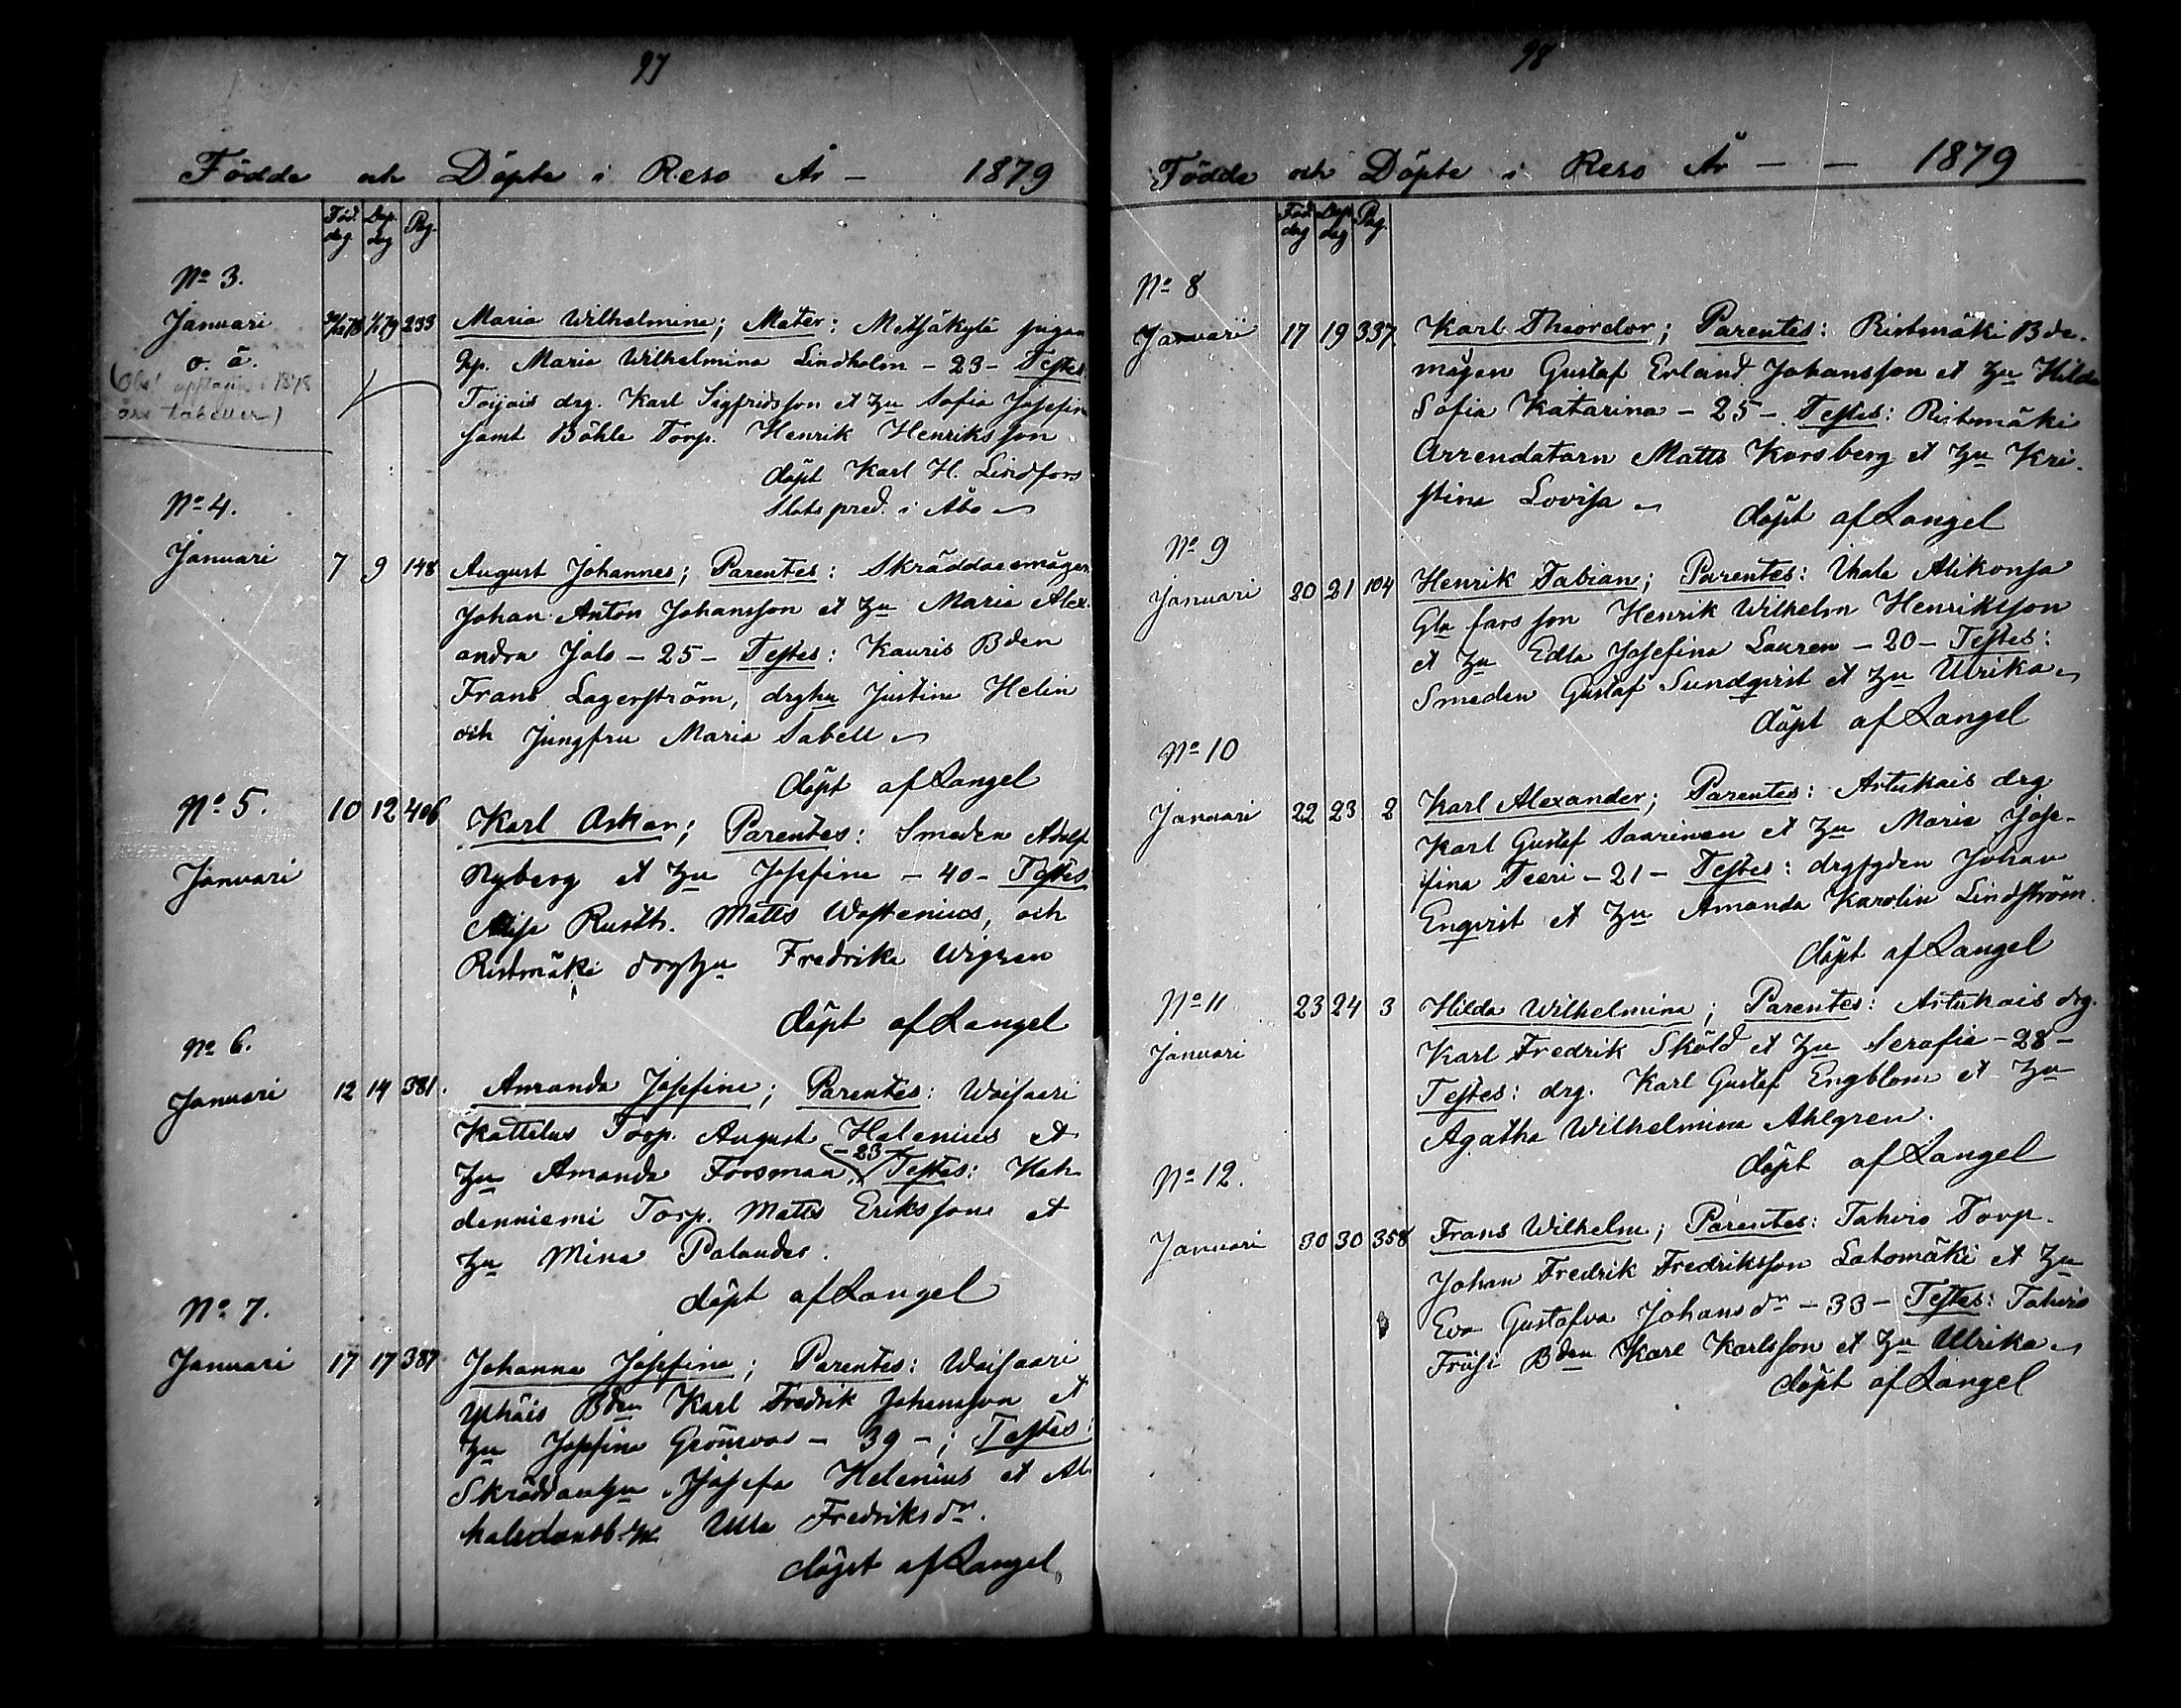 97
Födde och Döpte i Reso År — 1879
Föd. dag Döp. dag Pag.
No 3.
Januari 30/12 78 1/1 79 233 Maria Wilhelmina; Mater: Metsäkylä pigan
o. ä.
(Obs! upptagen i 1878
års tabeller)
Hp. Maria Wilhelmina Lindholm - 23 - Testes
Toijais drg. Karl Sigfridsson et Hu Sofia Josefin
samt Böhle Torp. Henrik Henriksson
döpt Karl H. Lindfors
Slotspred. i Åbo
No 4.
Januari 7 9 148 August Johannes; Parentes: Skräddaremågen
Johan Anton Johansson et Hu Maria Alex-
andra Jols - 25 - Testes: Kauris Bden
Frans Lagerström, drghu Justina Helin
och Jungfru Maria Sabell
döpt af Langel
No 5. 10 12 406 Karl Oskar; Parentes: Smeden Adolf
Januari
Nyberg et Hu Josefina - 40 - Testes
Rusth. Matts Wastenius, och
Ristmäki drghu Fredrika Wigren
döpt af Langel
No 6.
Januari 12 14 381. Amanda Josefina; Parentes: Waisaari
Kattelus Torp. August Helenius et
Hu Amanda Forsman - 23 - Testes: Kah-
denniemi Torp. Matts Eriksson et
Hu Mina Palander.
döpt af Langel
No 7.
Januari 17 17 387 Johanna Josefina; Parentes: Waisaari
Yhäis Bden Karl Fredrik Johansson et
Hu Josefina Grönroos - 39 -; Testes:
Skräddarehu Josefa Helenius et
Ulla Fredriksdr.
döpt af Langel
98
Födde och Döpte i Reso År — — 1879
Föd. dag Döp. dag Pag.
No 8
Januari 17 19 337. Karl Theordor; Parentes: Ristmäki Bde-
mågen Gustaf Erland Johansson et Hu Hilda
Sofia Katarina - 25 - Testes: Ristmäki
Arrendatorn Matts Korsberg et Hu Kri-
stina Lovisa
döpt af Langel
No 9
Januari 20 21 104 Henrik Fabian; Parentes: Ihala Alikonsa
Gla fars son Henrik Wilhelm Henriksson
et Hu Edla Josefina Lauren - 20 - Testes:
Smeden Gustaf Sundqvist et Hu Ulrika
döpt af Langel
No 10
Januari 22 23 2 Karl Alexander; Parentes: Artukais drg
Karl Gustaf Saarinen et Hu Maria Jose-
fina Teeri - 21 - Testes: drgfgden Johan
Engvist et Hu Amanda Karolin Lindström.
döpt af Langel
No 11 23 24 3 Hilda Wilhelmina; Parentes: Artukais drg.
Januari
Karl Fredrik Sköld et Hu Serafia - 28 -
Testes: drg. Karl Gustaf Engblom et Hu
Agatha Wilhelmina Ahlgren.
döpt af Langel
No 12.
Januari 30 30 358 Frans Wilhelm; Parentes: Tahvio Torp.
Johan Fredrik Fredriksson Latomäki et Hu
Eva Gustafva Johansdr - 33 - Testes: Tahvio
Bden Karl Karlsson et Hu Ulrika
döpt af Langel